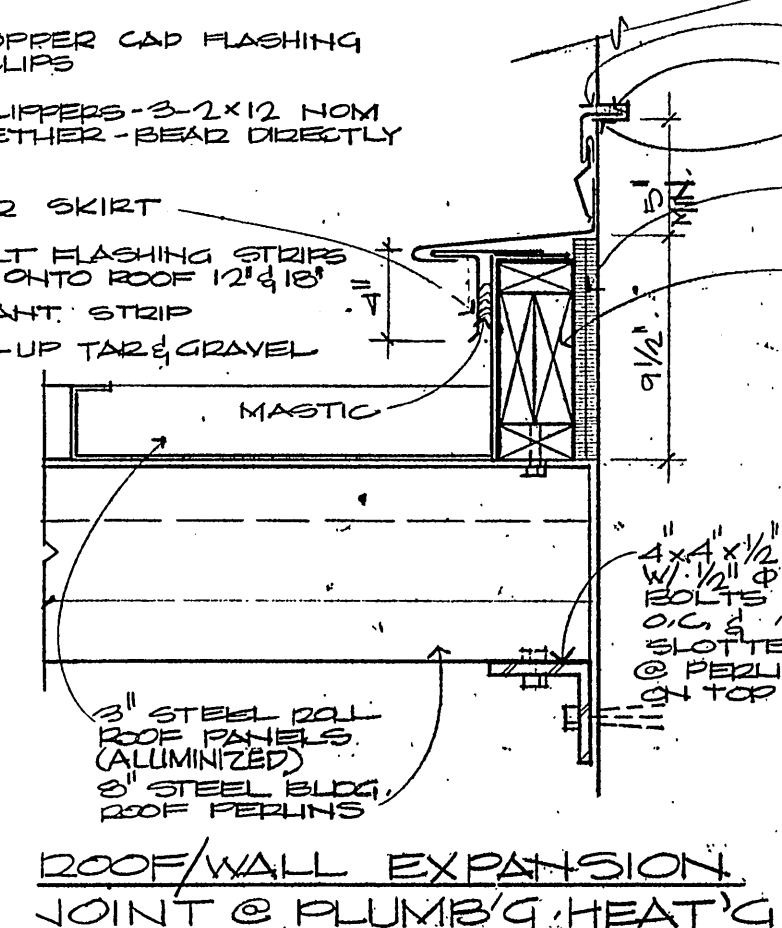 OPPER CAP FLASHING
LIPS
LIPPERS-3-2x12 NOM
ETHER-BEAR DIRECTLY
R SKIRT
LT FLASHING STRIPS
ONTO ROOF 12" & 18"
ANT STRIP
-UP TAR & GRAVEL
4"
5" MIN.
9 1/2"
MASTIC
4"x4"x1/2"
W/ 1/2" Φ
BOLTS
O.C. &
SLOTTE
@ PERLI
ON TOP
3" STEEL ROLL
ROOF PANELS
(ALUMINIZED)
8" STEEL BLDG.
ROOF PERLINS
ROOF/WALL EXPANSION
JOINT @ PLUMB'G, HEAT'G